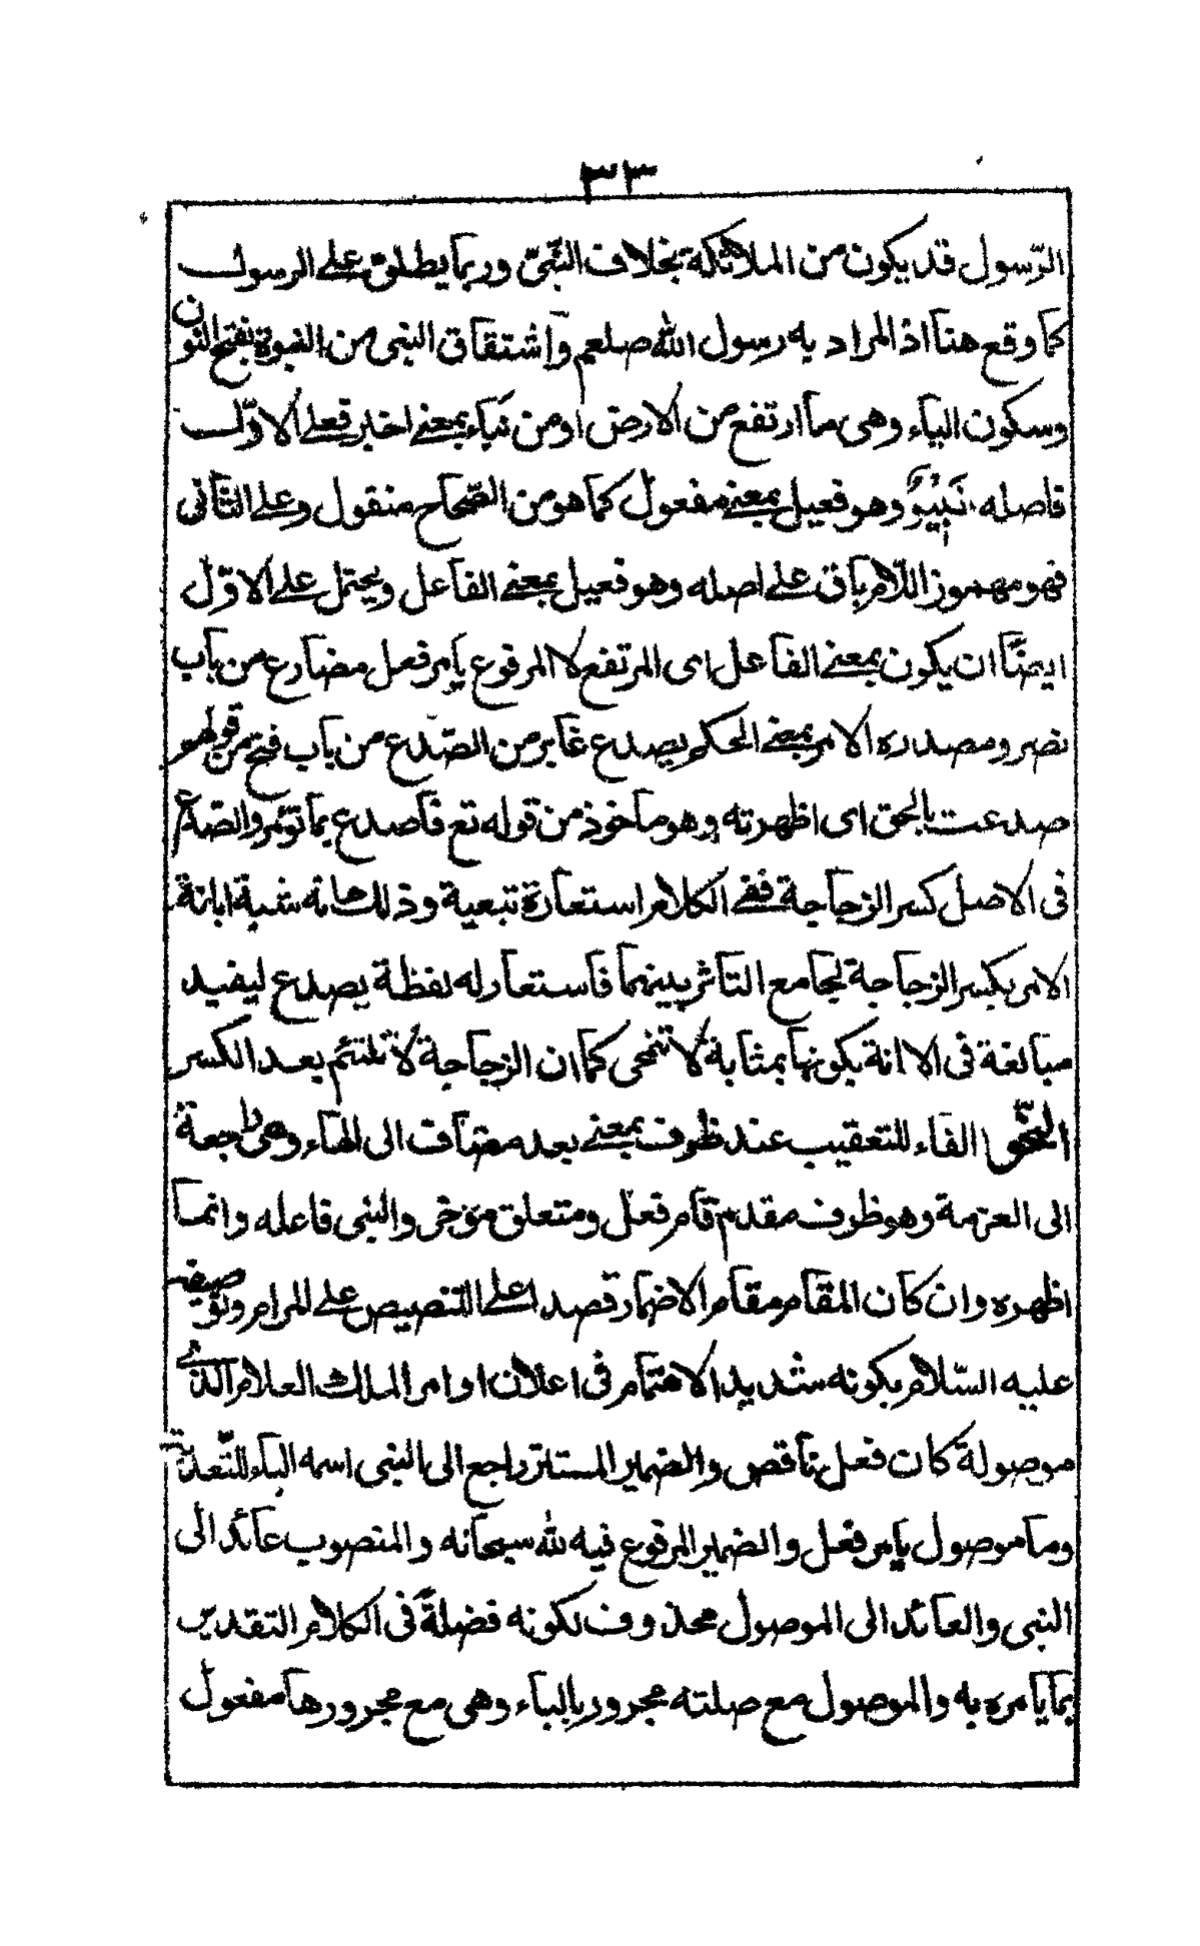 ٣٣
الرّسول قد يكون من الملائكة بخلاف النّبيّ وربما يطلق على الرسول
كما وقع هنا اذ المراد به رسول الله صلعم واشتقاق النبى من النبوة بفتح النون
وسكون الباء وهى ما ارتفع من الارض او من نباء بمعنى اخبر فعلى الاوّل
فاصله نَبِيْوٌ وهو فعيل بمعنى مفعول كما هو من الصّحاح منقول وعلى الثانى
فهو مهموز اللّام باق على اصله وهو فعيل بمعنى الفاعل ويحتمل على الاوّل
ايضًا ان يكون بمعنى الفاعل اى المرتفع لا المرفوع يامر فعل مضارع من باب
نصر ومصدره الامر بمعنى الحكم يصدع غابر من الصّدع من باب فتح من قولهم
صدعت بالحق اى اظهرته وهو ماخوذ من قوله تع فاصدع بما تؤمر والصّدع
فى الاصل كسر الزجاجة ففى الكلام استعارة تبعية وذلك انه شبه ابانة
الامر بكسر الزجاجة لجامع التاثر بينهما فاستعار له لفظة يصدع ليفيد
مبالغة فى الابانة بكونها بمثابة لا تنمحى كما ان الزجاجة لا تلتئم بعد الكسر
النّحو الفاء للتعقيب عند ظرف بمعنى بعد مضاف الى الهاء وهى راجعة
الى العزمة وهو ظرف مقدم قام فعل ومتعلق مؤخر والنبى فاعله وانما
اظهره وان كان المقام مقام الاضمار قصدا على التنصيص على المرام وتوصيفه
عليه السّلام بكونه شديد الاهتمام فى اعلان اوامر الملك العلام الذى
موصولة كان فعل ناقص والضمير المستتر راجع الى النبى اسمه الباء للتّعدية
وما موصول يامر فعل والضمير المرفوع فيه لله سبحانه والمنصوب عائد الى
النبى والعائد الى الموصول محذوف لكونه فضلةً فى الكلام التقدير
بما يامره به والموصول مع صلته مجرور بالباء وهى مع مجرورها مفعول